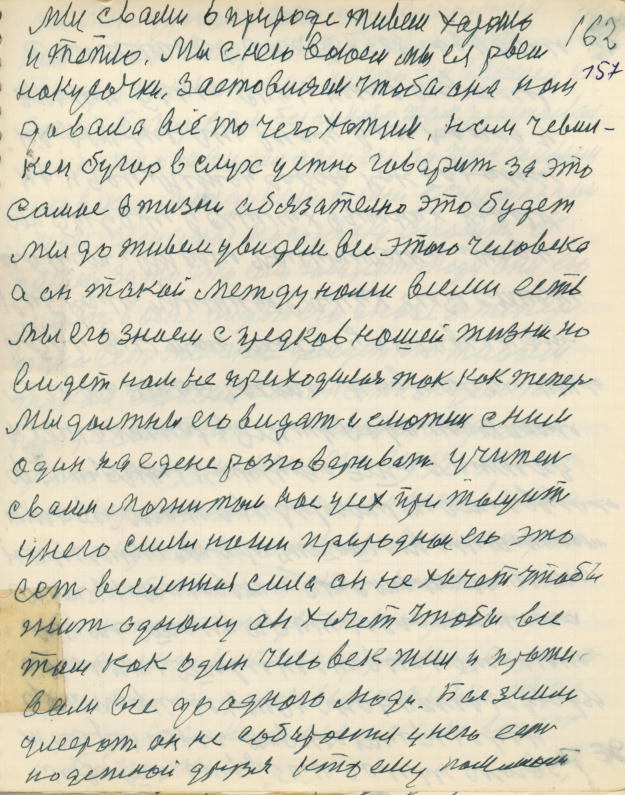 мы с вами в природе живем харошо 162
и тепло. Мы с него воюем мы ея рвем 157
на кусочки. Застовляем чтоба она нам
довала всё то чего хотим, нам Чевил-
кен бугор в слух устно говарит за это
самое в жизни обязателно это будет
мы до живем увидем все этого человека
а он такой между ноими всеми есть
мы его знаем с предков нашей жизни но
видет нам не приходилося так как тепер
мы должны его видат и сможим с ним
один на едене разговаривать учител
сваим магнитом нас усех притащит
у него силы ноши природныи его это
сет вселенная сила он не хочет чтобы
жит одному ан хочет чтобы все
там как один человек жил и прожи-
вали все до одного люди. По земли
умерат он не собирается у него есть
надежной друзя кто ему